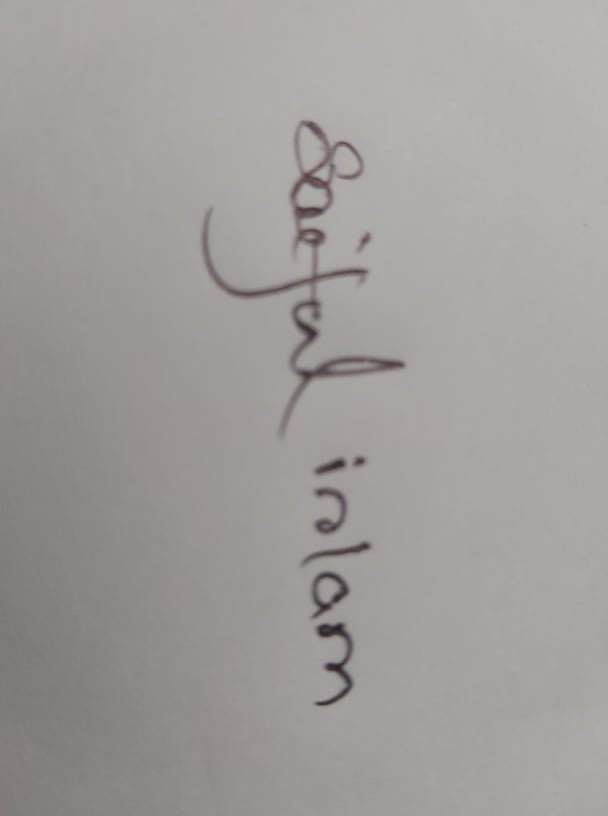 Saiful islam